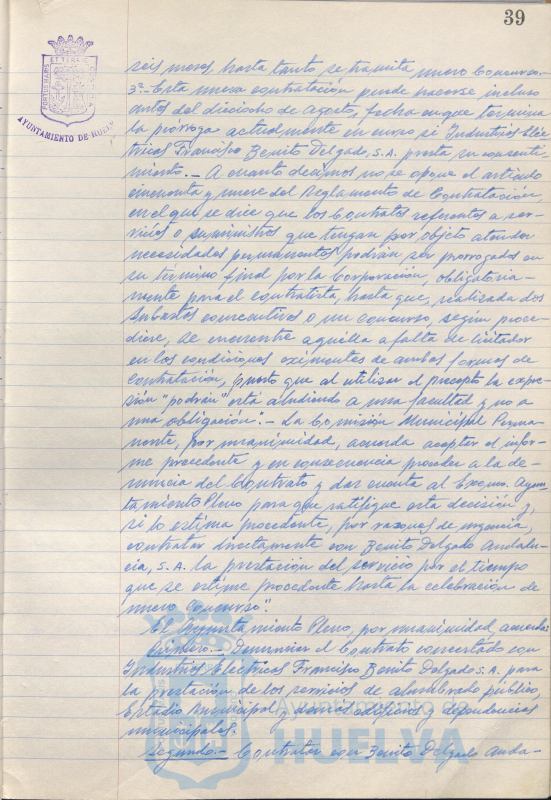 39
AYUNTAMIENTO DE HUELVA
seis meses, hasta tanto se tramita nuevo Concurso.-
3ª- Esta nueva contratación puede hacerse incluso
antes del dieciocho de Agosto, fecha en que termina
la prórroga actualmente en curso si Industrias Eléc-
tricas Francisco Benito Delgado, S.A. presta su consenti-
miento.- A cuanto decimos no se opone el artículo
cincuenta y nueve del Reglamento de Contratación,
en el que se dice que los Contratos referentes a ser-
vicios o suministros que tengan por objeto atender
necesidades permanentes podrán ser prorrogados en
su término final por la Corporación, obligatoria-
mente para el contratista, hasta que, realizada dos
Subastas consecutivas o un concurso, según proce-
diere, se encuentre aquélla a falta de licitador
en las condiciones eximentes de ambas formas de
Contratación, punto que al utilizar el precepto la expre-
sión "podrán" está aludiendo a una facultad y no a
una obligación".- La Comisión Municipal Perma-
nente, por unanimidad, acuerda aceptar el infor-
me precedente y en consecuencia proceder a la de-
nuncia del Contrato y dar cuenta al Excmo. Ayun-
tamiento Pleno para que ratifique esta decisión y,
si lo estima procedente, por razones de urgencia,
contratar directamente con Benito Delgado Andalu-
cía, S.A. la prestación del servicio por el tiempo
que se estime procedente hasta la celebración de
nuevo Concurso".
El Ayuntamiento Pleno, por unanimidad, acuerda:
Primero.- Denunciar el Contrato concertado con
Industrias Eléctricas Francisco Benito Delgado S.A. para
la prestación de los servicios de alumbrado público,
Estadio Municipal y demás edificios y dependencias
municipales.
Segundo.- Contratar con Benito Delgado Anda-
Ayuntamiento de
HUELVA